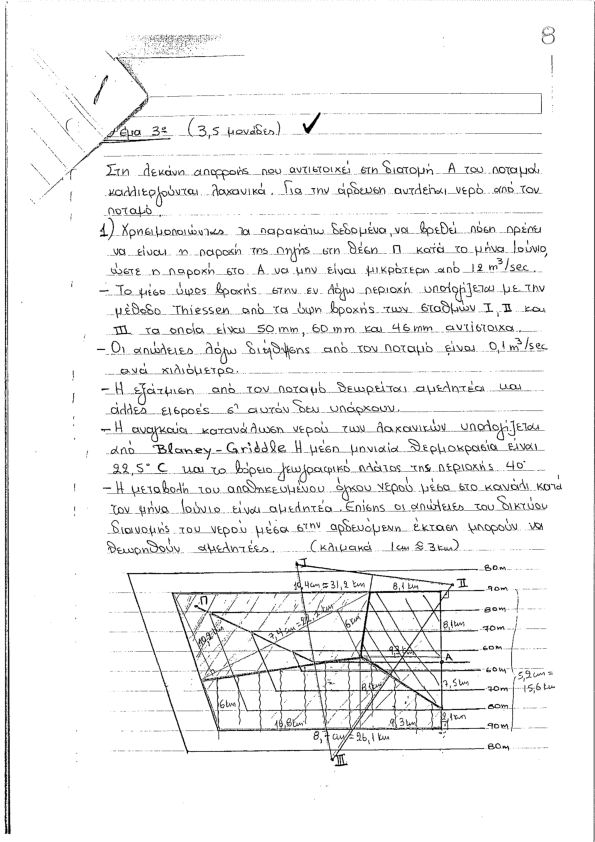 8
Θέμα 3ο (3,5 μονάδες) ✓
Στη λεκάνη απορροής που αντιστοιχεί στη διατομή Α του ποταμού
καλλιεργούνται λαχανικά. Για την άρδευση αντλείται νερό από τον
ποταμό.
1) Χρησιμοποιώντας τα παρακάτω δεδομένα, να βρεθεί πόση πρέπει
να είναι η παροχή της πηγής στη θέση Π κατά το μήνα Ιούνιο,
ώστε η παροχή στο Α να μην είναι μικρότερη από 12 m³/sec.
- Το μέσο ύψος βροχής στην εν λόγω περιοχή υπολογίζεται με την
μέθοδο Thiessen από τα ύψη βροχής των σταθμών I, II και
III τα οποία είναι 50 mm, 60 mm και 46 mm αντίστοιχα.
- Οι απώλειες λόγω διήθησης από τον ποταμό είναι 0,1 m³/sec
ανά χιλιόμετρο.
- Η εξάτμιση από τον ποταμό θεωρείται αμελητέα και
άλλες εισροές σ' αυτόν δεν υπάρχουν.
- Η αναγκαία κατανάλωση νερού των λαχανικών υπολογίζεται
από Blaney-Griddle. Η μέση μηνιαία θερμοκρασία είναι
22,5°C και το βόρειο γεωγραφικό πλάτος της περιοχής 40°
- Η μεταβολή του αποθηκευμένου όγκου νερού μέσα στο κανάλι κατά
τον μήνα Ιούνιο είναι αμελητέα. Επίσης οι απώλειες του δικτύου
διανομής του νερού μέσα στην αρδευόμενη έκταση μπορούν να
θεωρηθούν αμελητέες. (κλίμακα 1cm ≙ 3km)
I
80m
10,4cm = 31,2 km
8,1 km
II
90m
Π
80m
8,1km
70m
6km
60m
A
60m
7,5km
5,2cm =
15,6km
70m
6km
80m
2,1km
18,6km
9,3km
90m
8,7cm = 26,1 km
80m
III